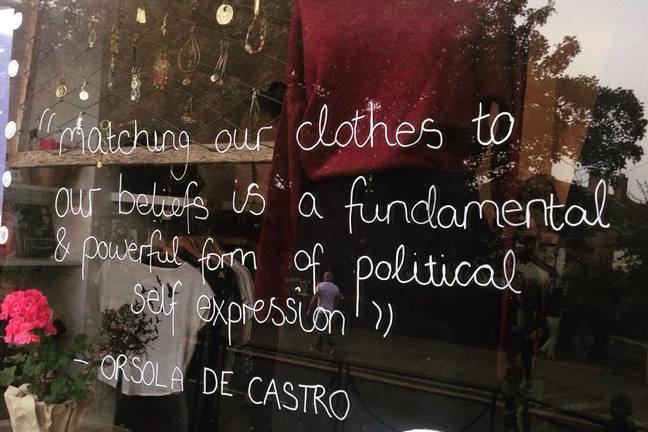 "matching our clothes to
our beliefs is a fundamental
& powerful form of political
self expression"
- ORSOLA DE CASTRO